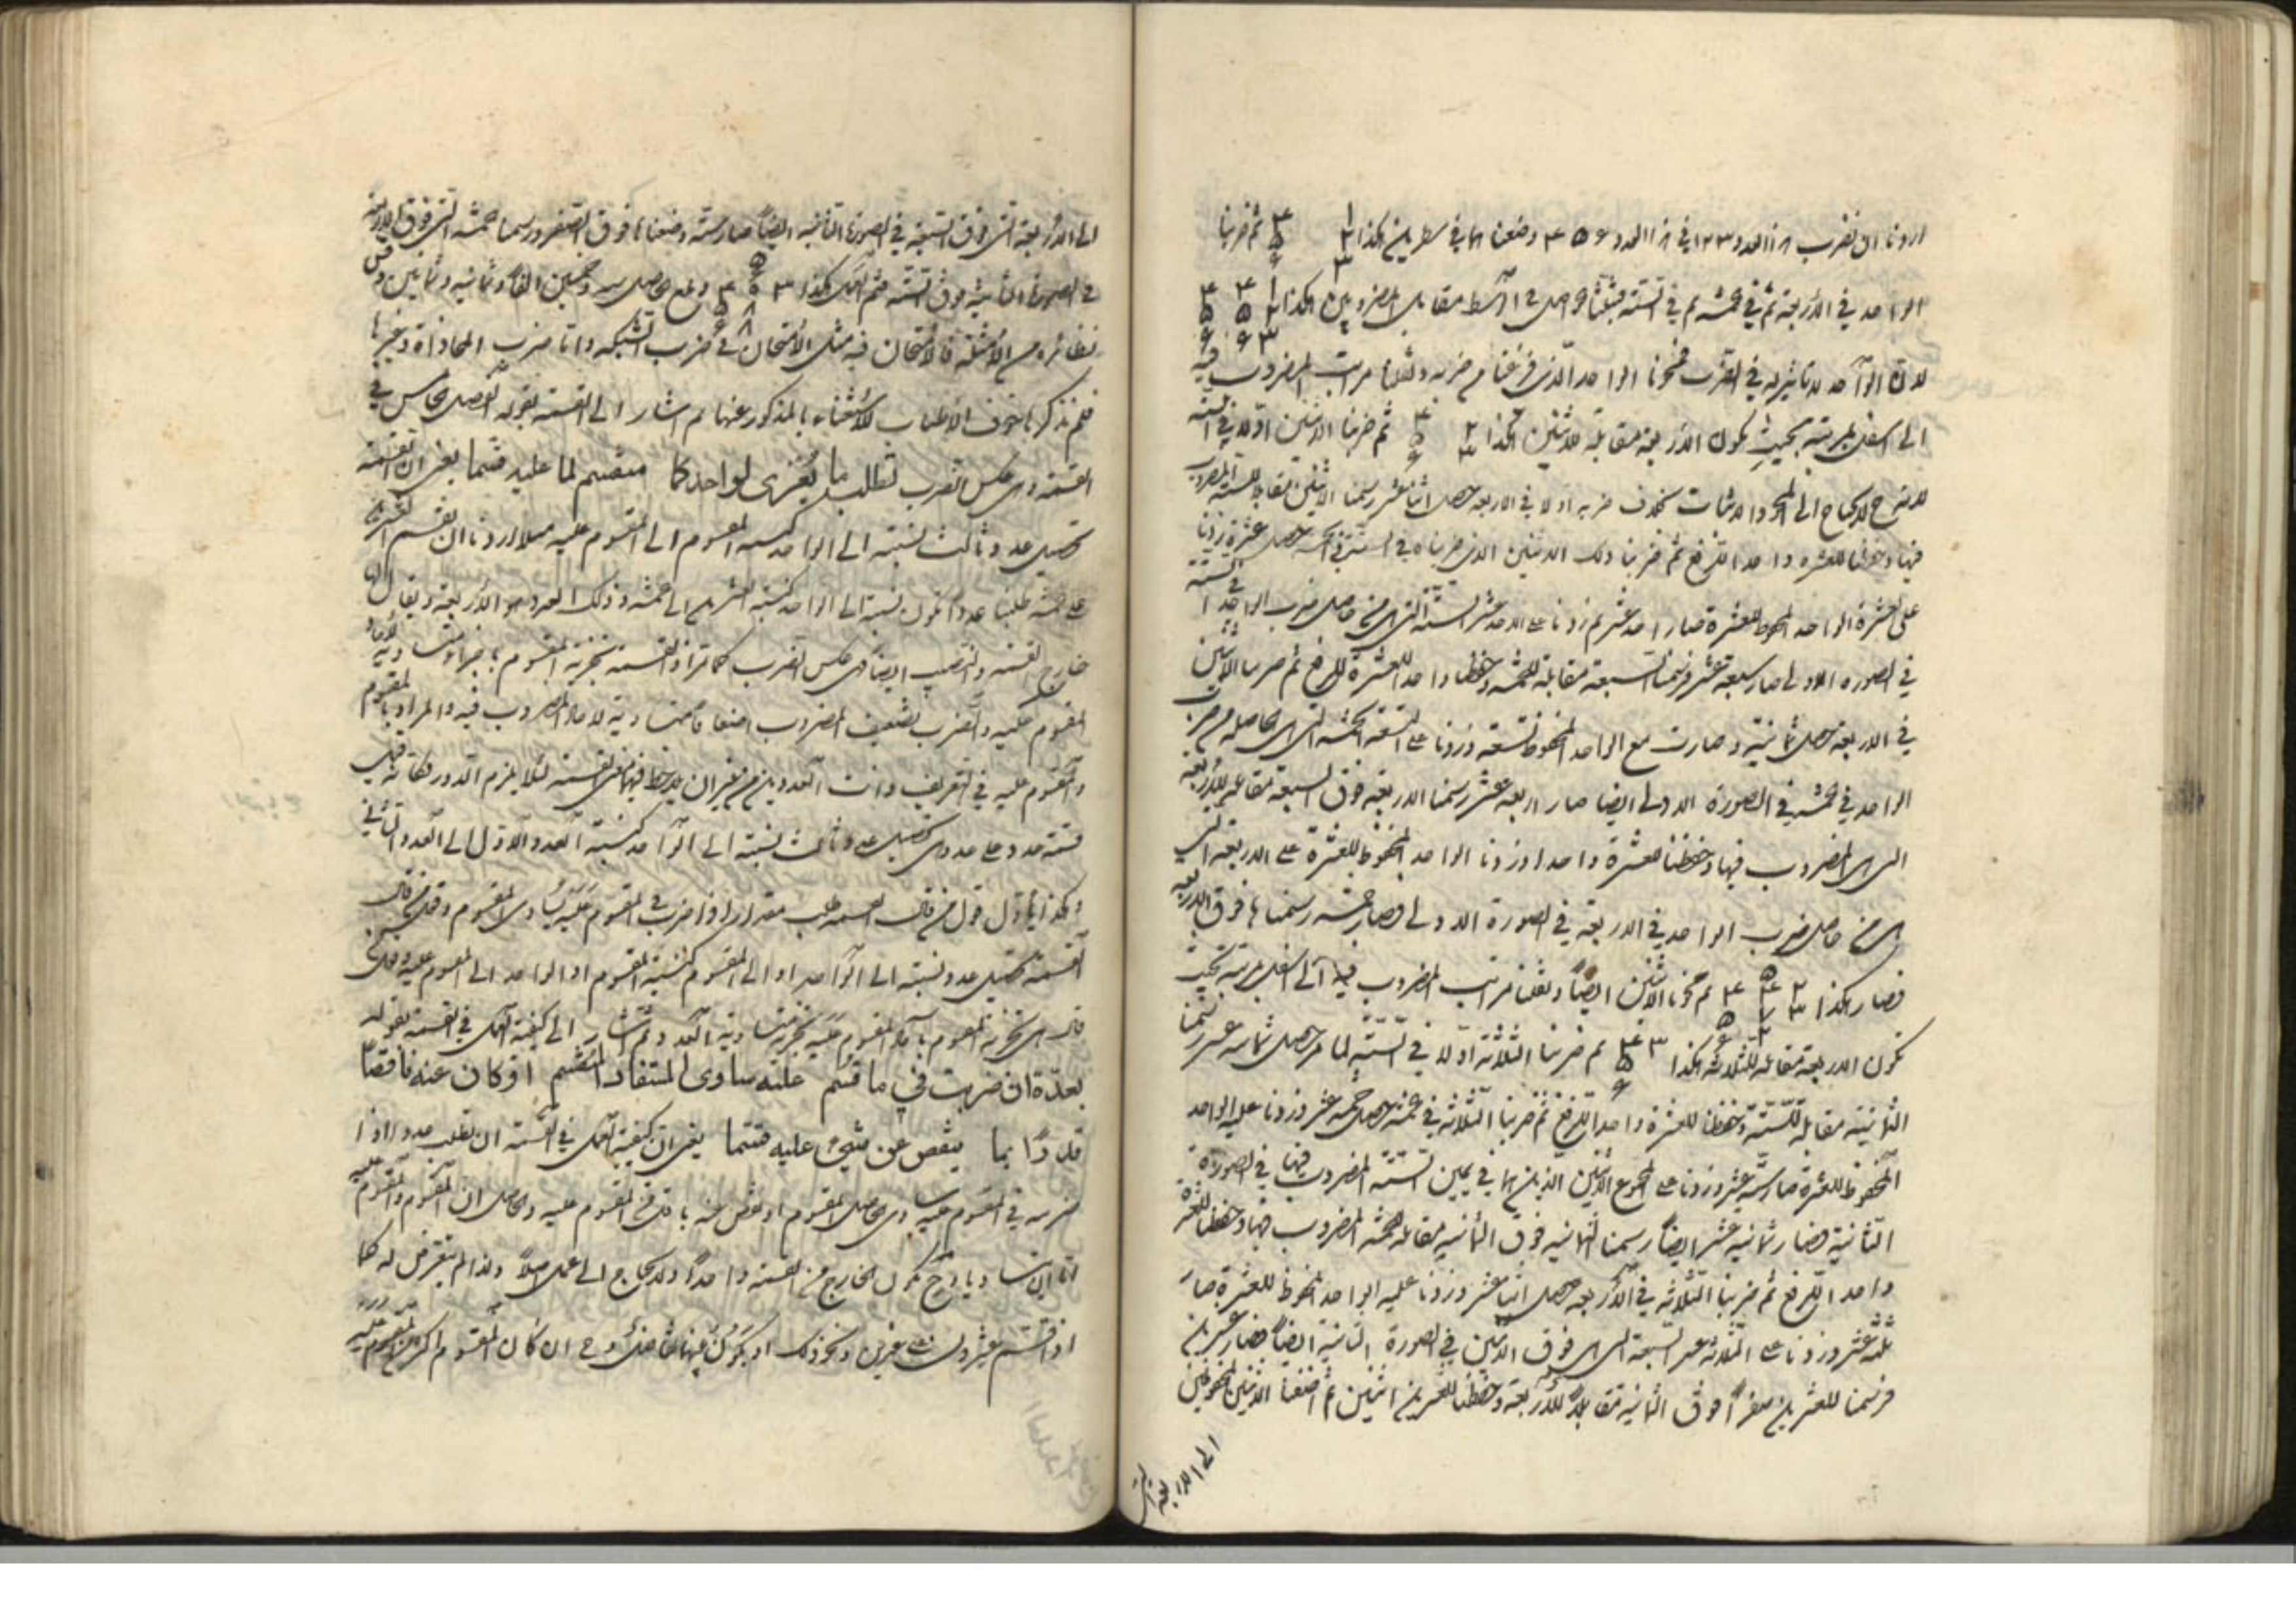 اردنا ان نضرب هذا العدد ١٢٣ في هذا العدد ٤٥٦ وضعناهما في سطرين هكذا ١ ٢ ٣ ٤ ٥ ٦ ثم ضربنا
الواحد في الاربعة ثم في خمسة ثم في الستة اثبتنا الحواصل في الوسط مقابل المضروبين هكذا ١ ٢ ٣ ٤ ٥ ٦ ٤ ٥ ٦
لان الواحد لا تاثير له في الضرب فمحونا الواحد الذي فرغنا من ضربه ونقلنا مراتب المضروب فيه
الى اسفل بمرتبة بحيث يكون الاربعة مقابلة للاثنين هكذا ٢ ٣ ٤ ٥ ٦ ثم ضربنا الاثنين اولا في الستة
لئلا نحتاج الى المحو والاثبات بخلاف ضربه اولا في الاربعة حصل اثنا عشر رسمنا الاثنين مقابلا للستة المضروب
فيها وحفظنا للعشرة واحدا للرفع ثم ضربنا ذلك الاثنين الذي ضربناه في الستة في الخمسة حصل عشرة زدنا
على العشرة الواحد المحفوظ للعشرة صار احد عشر ثم زدنا على الاحد عشر الستة التي هي من حاصل ضرب الواحد في الستة
في الصورة الاولى صار سبعة عشر فرسمنا السبعة مقابلة للخمسة وحفظنا واحدا للعشرة للرفع ثم ضربنا الاثنين
في الاربعة حصل ثمانية وصارت مع الواحد المحفوظ تسعة وزدنا على التسعة الخمسة التي هي الحاصلة من ضرب
الواحد في خمسة في الصورة الاولى ايضا صار اربعة عشر رسمنا الاربعة فوق السبعة مقابلة للاربعة
التي هي المضروب فيها وحفظنا للعشرة واحدا وزدنا الواحد المحفوظ للعشرة على الاربعة التي
هي من حاصل ضرب الواحد في الاربعة في الصورة الاولى وصار خمسة رسمناها فوق الاربعة
فصار هكذا ٢ ٣ ٥ ٤ ٧ ٢ ٤ ٥ ٦ ثم محونا الاثنين ايضا ونقلنا مراتب المضروب فيه الى اسفل بمرتبة بحيث
يكون الاربعة مقابلة للثلاثة هكذا ٣ ٤ ٥ ٦ ثم ضربنا الثلاثة اولا في الستة لما مر حصل ثمانية عشر رسمنا
الثمانية مقابلة للستة وحفظنا للعشرة واحدا للرفع ثم ضربنا الثلاثة في خمسة حصل خمسة عشر وزدنا عليه الواحد
المحفوظ للعشرة صار ستة عشر وزدنا على المجموع الاثنين الذين هما في يمين الستة المضروب فيها في الصورة
الثانية فصار ثمانية عشر ايضا رسمنا الثمانية فوق الثمانية مقابلة للخمسة المضروب فيها وحفظنا للعشرة
واحدا للرفع ثم ضربنا الثلاثة في الاربعة حصل اثنا عشر وزدنا عليه الواحد المحفوظ للعشرة صار
ثلثة عشر وزدنا على الثلاثة عشر السبعة التي هي فوق الاثنين في الصورة الثانية ايضا فصار عشرين
فرسمنا للعشرين صفرا فوق الثمانية مقابلا للاربعة وحفظنا للعشرين اثنين ثم اضفنا الاثنين المحفوظين
الى الاربعة التي
الى الاربعة التي فوق السبعة في الصورة الثانية ايضا صار ستة وضعناها فوق الصفر ورسمنا خمسة التي فوق الاربعة
في الصورة الثانية فوق الستة فتم العمل هكذا ٣ ٥ ٦ ٠ ٨ ٨ ٤ ٥ ٦ وقع حاصل ستة وخمسين الفا وثمانية وثمانين وقس
نظائره من الامثلة فالامتحان فيه مثل الامتحان في ضرب الشبكة واما ضرب المحاذاة وغيرها
فلم نذكرها خوف الاطناب للاستغناء بالمذكور عنها ثم اشار الى القسمة بقوله الفصل الخامس في
القسمة وهي عكس الضرب تطلب ما يُعزى لواحد كما منقسم لما عليه قسما يعني ان القسمة
تحصيل عدد ثالث نسبته الى الواحد كنسبة المقسوم الى المقسوم عليه مثلا اردنا ان نقسم العشرين
على خمسة طلبنا عددا يكون نسبته الى الواحد كنسبة العشرين الى خمسة وذلك العدد هو الاربعة ويقال ان
خارج القسمة والنصيب ايضا وهي عكس الضرب كما مر اذ القسمة تجزية المقسوم باجزاء متساوية لآحاد
المقسوم عليه والضرب تضعيف المضروب اضعافا متساوية لآحاد المضروب فيه والمراد بالمقسوم
والمقسوم عليه في التعريف ذات العددين من غير ان يلاحظ فيهما معنى القسمة لئلا يلزم الدور فكانه قيل
قسمة عدد على عدد هي تحصيل عدد ثالث نسبته الى الواحد كنسبة العدد الاول الى العدد الثاني
وهكذا يأول قول من قال القسمة طلب مقدار اذا ضرب في المقسوم عليه يساوي المقسوم وقول من قال
القسمة تحصيل عدد نسبته الى الواحد او الى المقسوم كنسبة المقسوم او الواحد الى المقسوم عليه وقول من
قال هي تجزية المقسوم بآحاد المقسوم عليه تجزية متساوية العدد ثم اشار الى كيفية العمل في القسمة بقوله
بعدّة ان ضربت في ما قسم عليه ساوى المستفاد المنقسم او كان عنه ناقصا
قدرًا بما ينقص عن شيء عليه قسما يعني ان كيفية العمل في القسمة ان تطلب عددا اذا
ضربته في المقسوم عليه يساوي الحاصل المقسوم او نقص عنه باقل من المقسوم عليه والحاصل ان المقسوم والمقسوم عليه
اما ان يتساويا وح يكون الخارج من القسمة واحدا ولا يحتاج الى عمل اصلا ولذا لم يتعرض له كما
اذا قسم عشرون على عشرين ونحو ذلك او يكون بينهما تفاضل وح ان كان المقسوم اكثر من المقسوم عليه